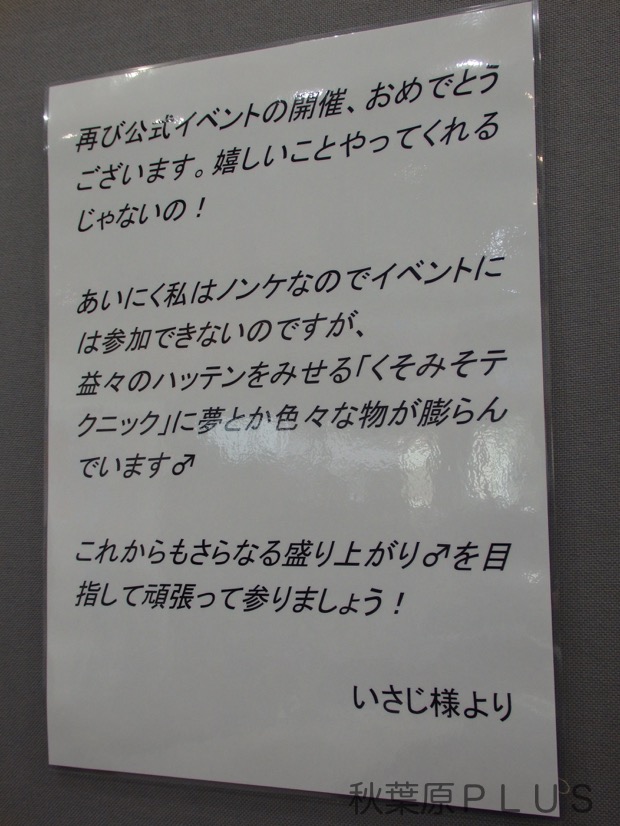 再び公式イベントの開催、おめでとう
ございます。嬉しいことやってくれる
じゃないの！
あいにく私はノンケなのでイベントに
は参加できないのですが、
益々のハッテンをみせる「くそみそテ
クニック」に夢とか色々な物が膨らん
でいます♂
これからもさらなる盛り上がり♂を目
指して頑張って参りましょう！
いさじ様より
秋葉原ＰＬＵＳ